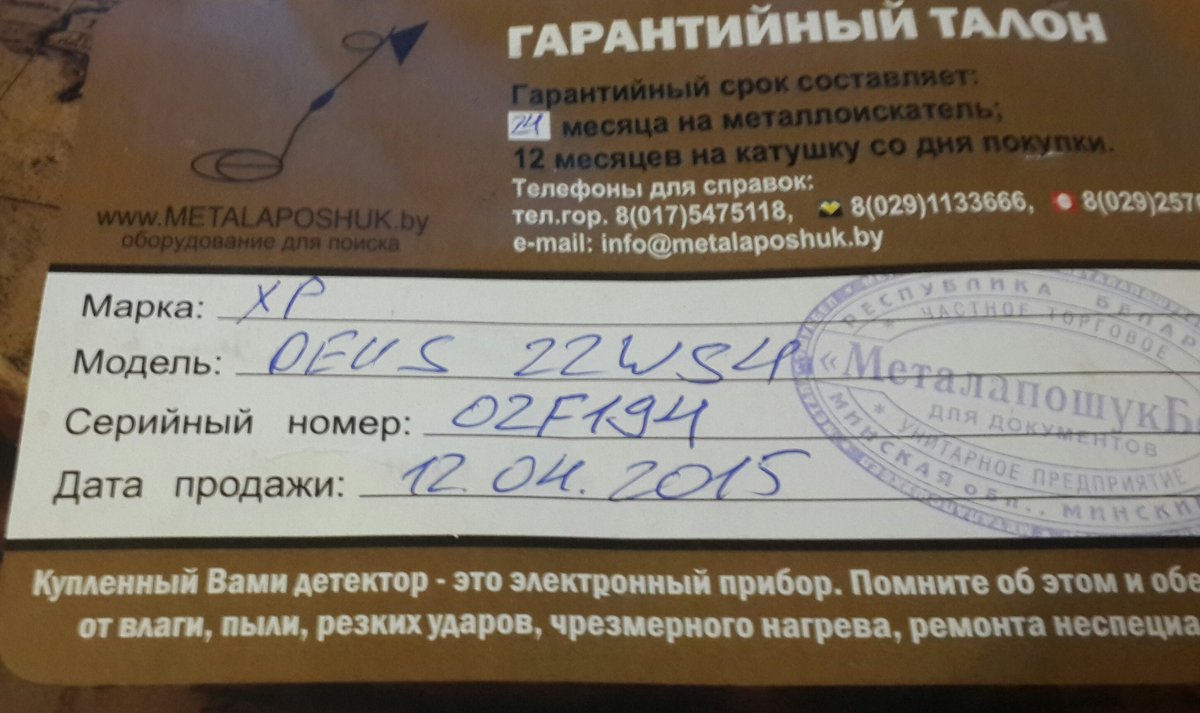 ГАРАНТИЙНЫЙ ТАЛОН
Гарантийный срок составляет:
24 месяца на металлоискатель;
12 месяцев на катушку со дня покупки.
Телефоны для справок:
тел.гор. 8(017)5475118, 8(029)1133666, 8(029)257
e-mail: info@metalaposhuk.by
www.METALAPOSHUK.by
оборудование для поиска
Марка: XP
Модель: DEUS 22WS4
Серийный номер: 02F194
Дата продажи: 12.04.2015
РЕСПУБЛИКА БЕЛАР
* ЧАСТНОЕ ТОРГОВОЕ
«МеталапошукБ
ДЛЯ ДОКУМЕНТОВ
* УНИТАРНОЕ ПРЕДПРИЯТИЕ
МИНСКАЯ обл., МИНСКИ
Купленный Вами детектор - это электронный прибор. Помните об этом и обе
от влаги, пыли, резких ударов, чрезмерного нагрева, ремонта неспециа